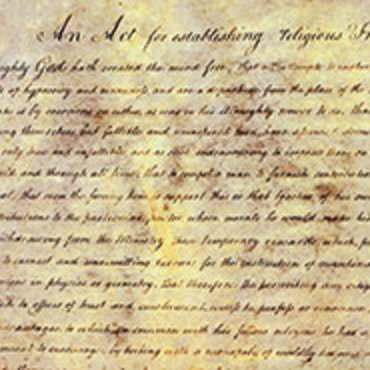 An Act for establishing religious Fr
ighty God hath created the mind free, that all attempts to
ts of hypocrisy and meanness, and are a departure from the plan of the
ate it by coercions on either, as was in his almighty power to do, tha
ing themselves but fallible and uninspired men, have
only true and infallible, and as such endeavouring to impose them on
and through all time, that to compel a man to furnish contribution
that even the forcing him to support this or that teacher of his own
tributions to the particular pastor, whose morals he would make his
ithdrawing from the ministry those temporary rewards, which p
to earnest and unremitting labours for the instruction of mankind
nions in physics or geometry, that therefore the proscribing any citize
to offices of trust and emolument, unless he profess or renounce
advantages to which in common with his fellow citizens he has a
meant to encourage, by bribing with a monopoly of worldly honour